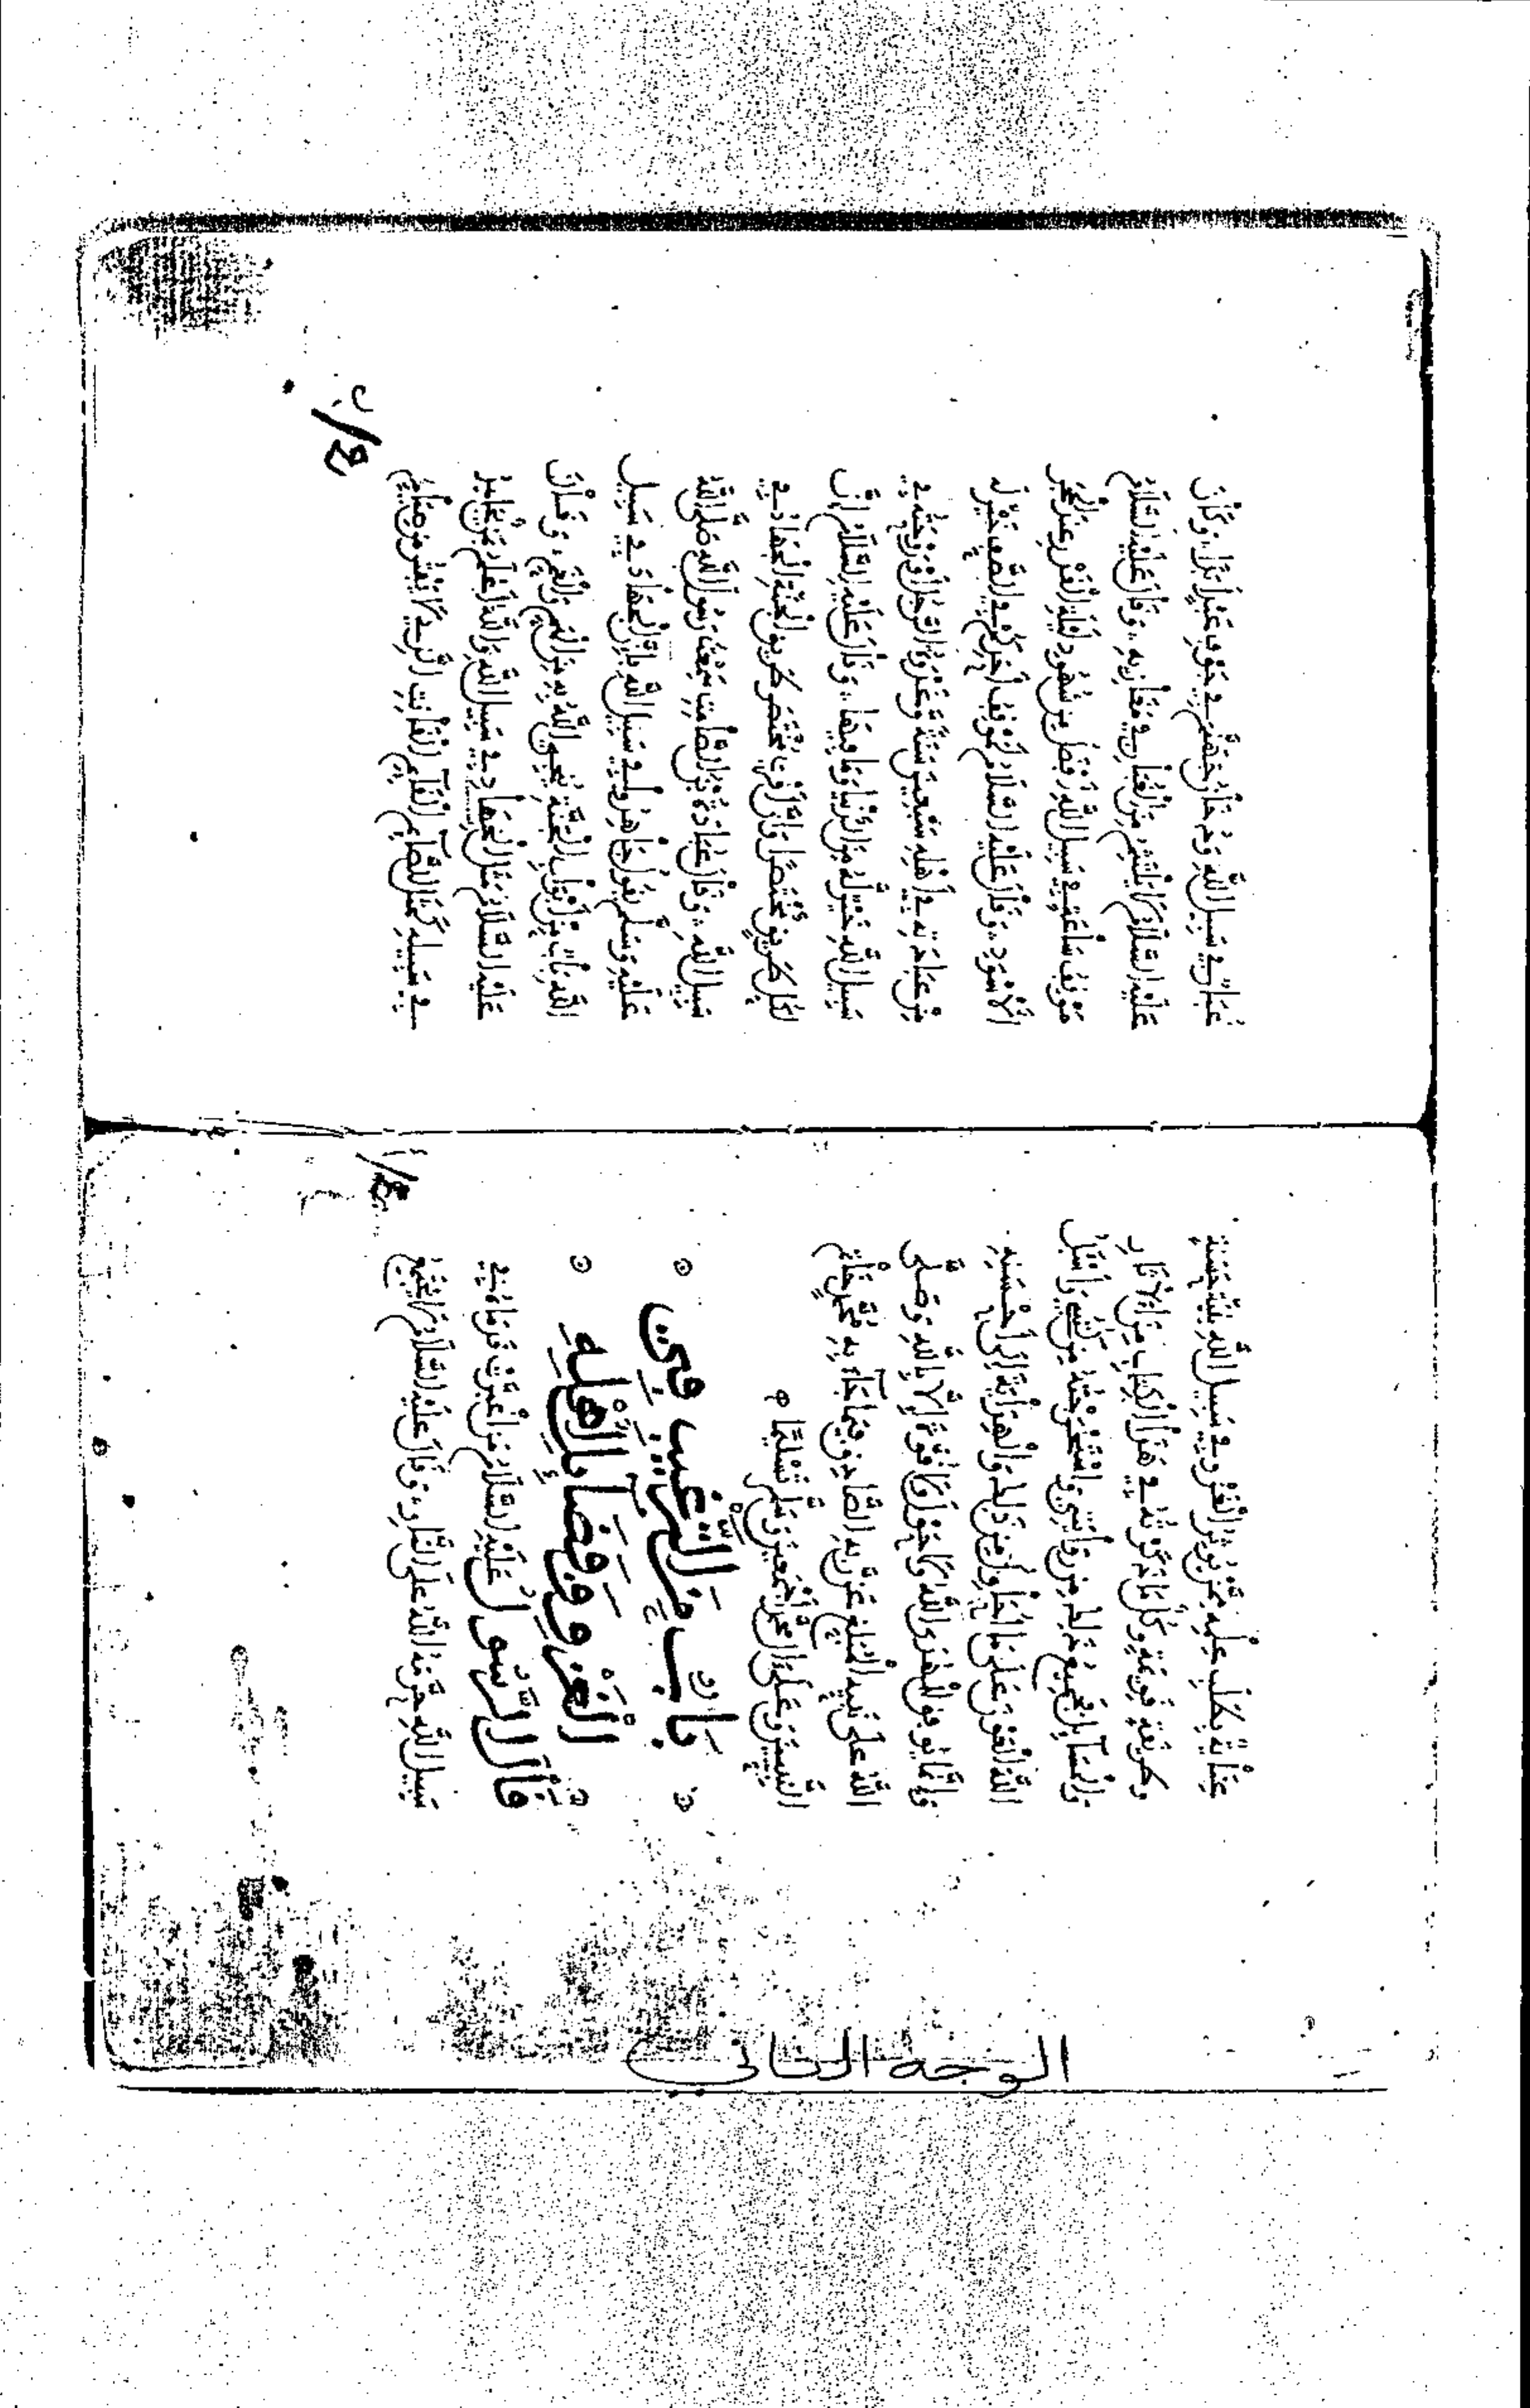 الوجه الثاني
4/أ
عناية بطلب علمه ممن يريد الغزو في سبيل الله بنية حسنة
وطريقة قويمة وكل ما ذكرته في هذا الكتاب من الآثار
والمسائل فجميع ذلك من روايتي واستخرجته من كتبي واسئل
الله العون على ما أحاول من ذلك والهداية إلى أحسنه
وإنما يوفق للهدى الله ولا حول ولا قوة إلا بالله وصلى
الله على نبيه المبلغ عن ربه الصادق فيما جاء به محمد خاتم
النبيين وعلى آل محمد أجمعين وسلم تسليما
باب من الترغيب في
الغزو وفضائل أهله
قال الرسول عليه السلام من اغبرت قدماه في
سبيل الله حرمه الله على النار وقال عليه السلام لا يجتمع
4/ب
غبار في سبيل الله ودخان جهنم في جوف عبد أبدا وكان
عليه السلام لا يلتثم من الغبار في مغازيه وقال عليه السلام
موقف ساعة في سبيل الله أفضل من شهود ليلة القدر عند الحجر
الأسود وقال عليه السلام لموقف أحدكم في الصف خير له
من عبادته في أهله سبعين سنة وغدوة الرجل أو روحته في
سبيل الله خير له من الدنيا وما فيها وقال عليه السلام إن
لكل طريق مختصرا وإن مختصر طريق الجنة الجهاد في
سبيل الله وقال عبادة بن الصامت سمعت رسول الله صلى الله
عليه وسلم يقول جاهدوا في سبيل الله فإن الجهاد في سبيل
الله باب من أبواب الجنة ينجي الله به من الهم والغم وقال
عليه السلام مثل المجاهد في سبيل الله والله أعلم بمن يجاهد
في سبيله كمثل الصائم القائم القانت الذي لا يفتر من صيام